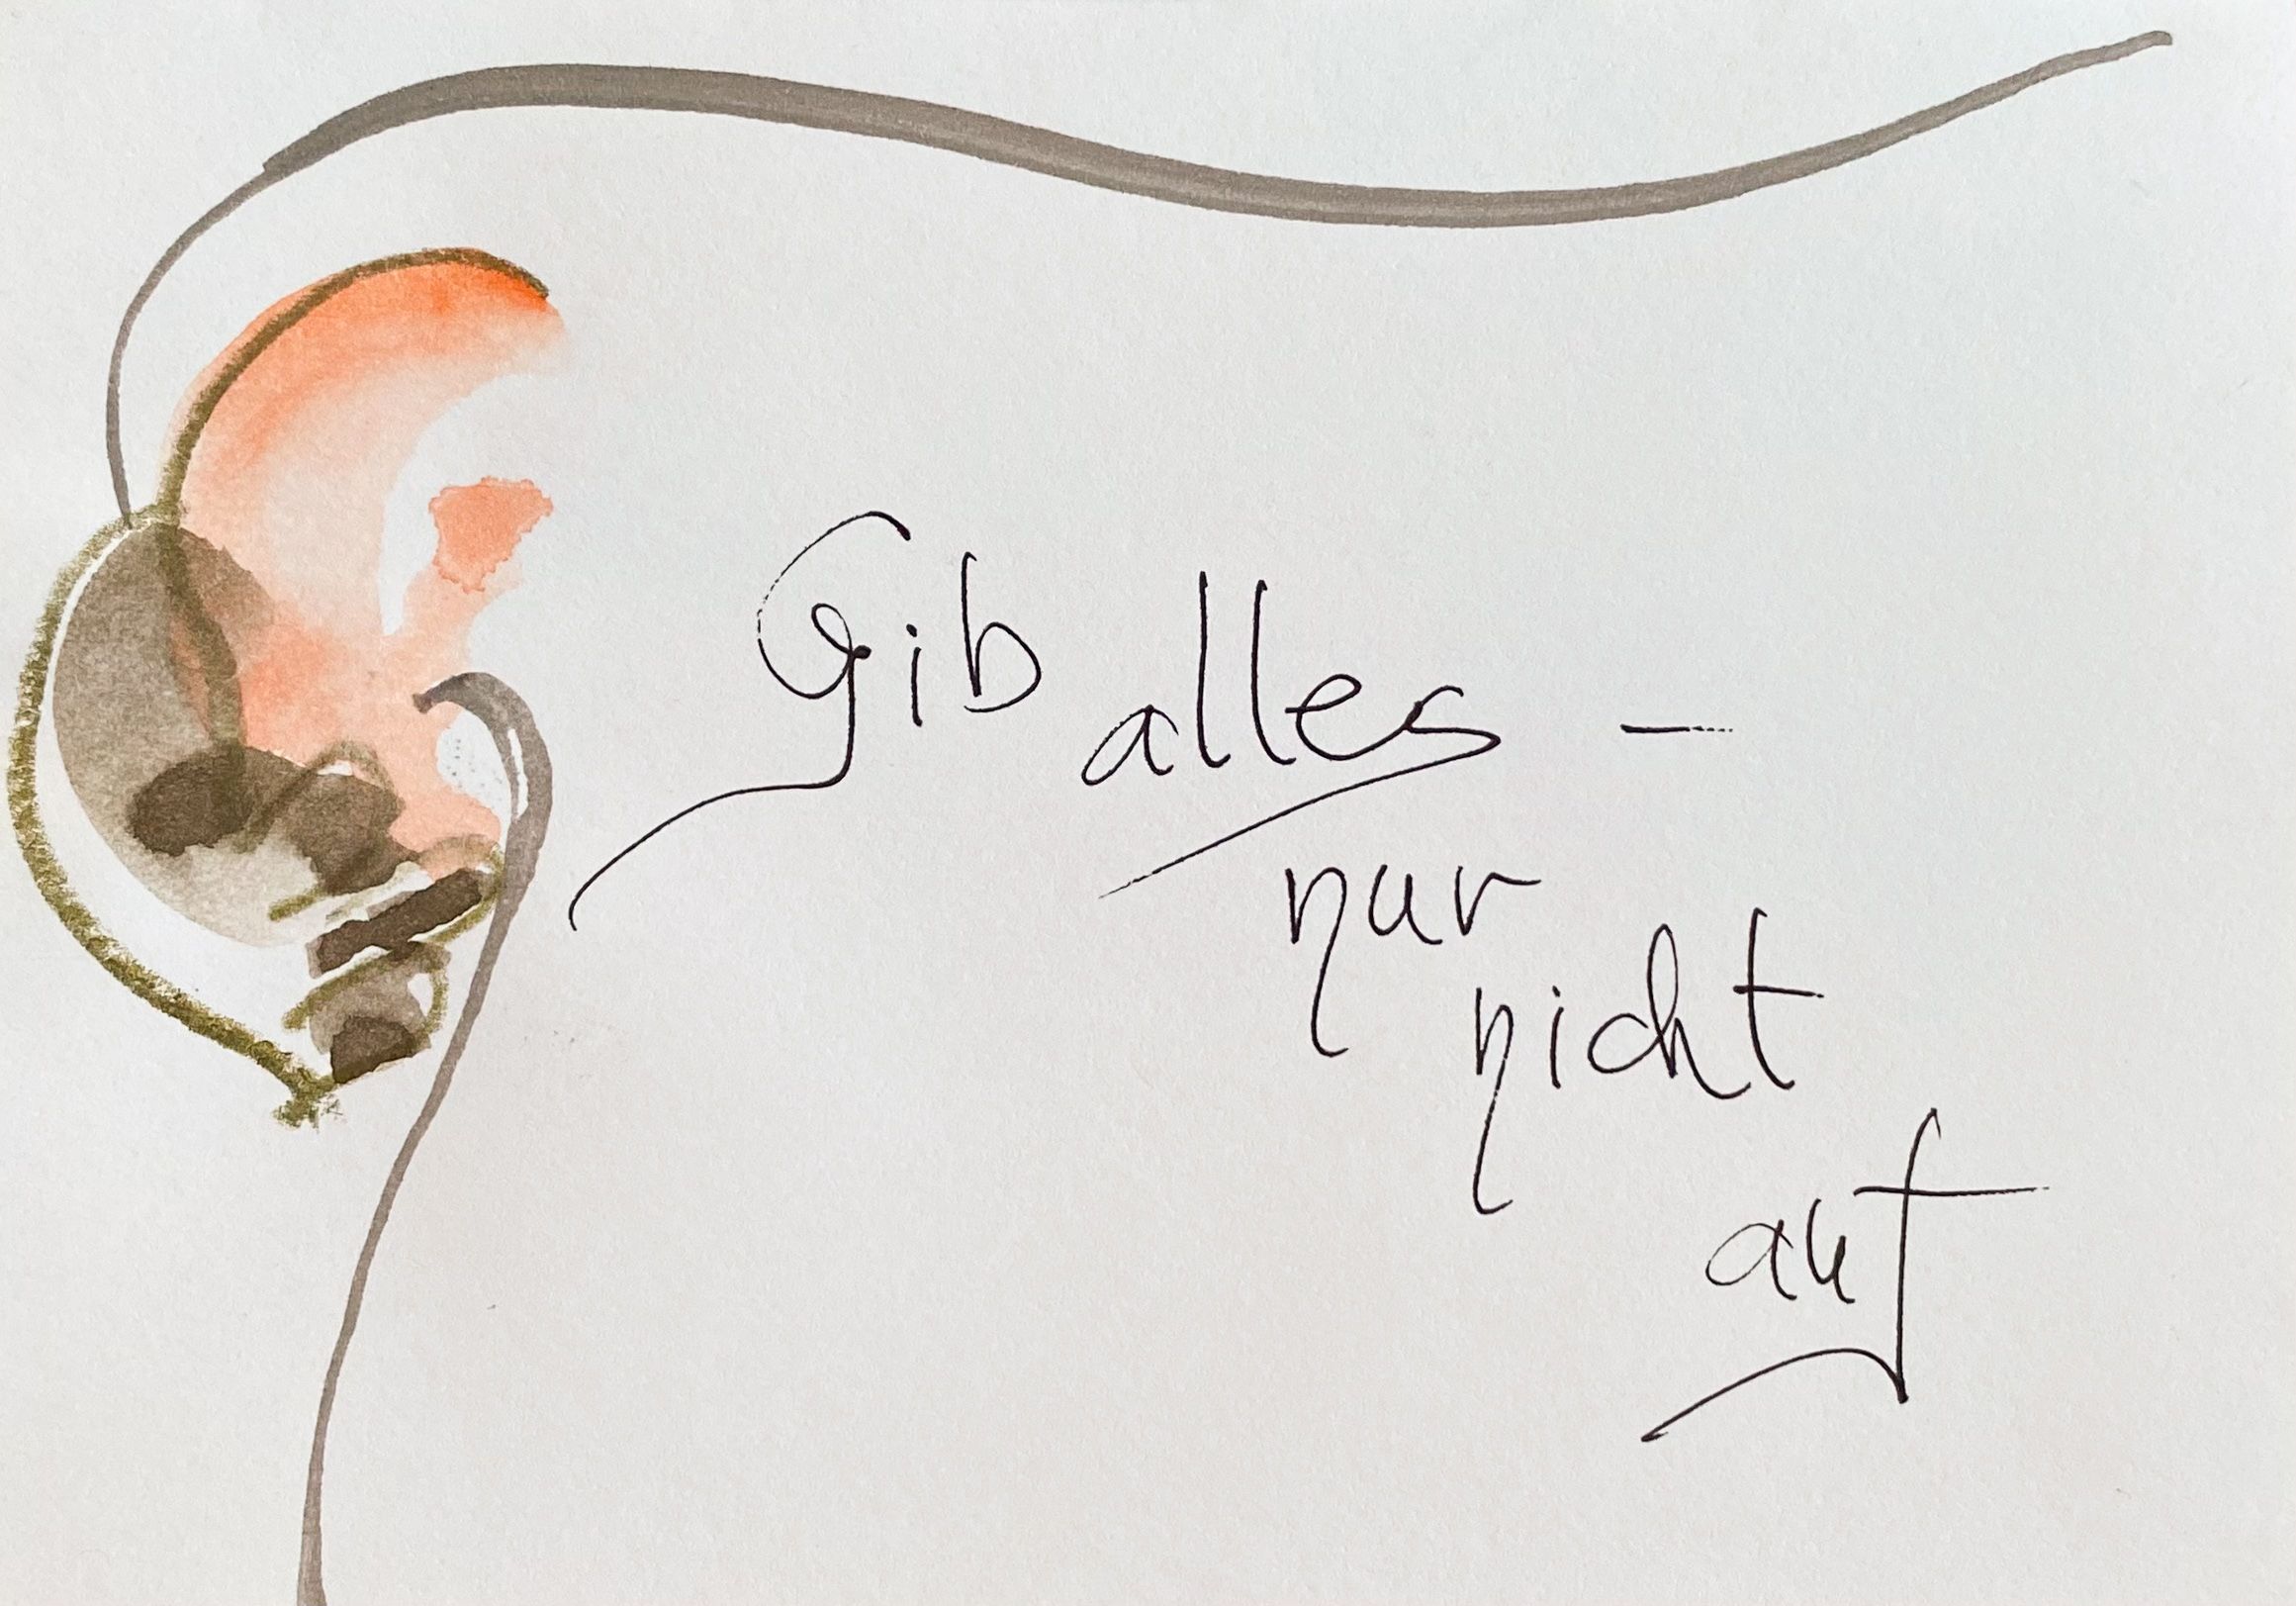 Gib alles –
nur
nicht
auf